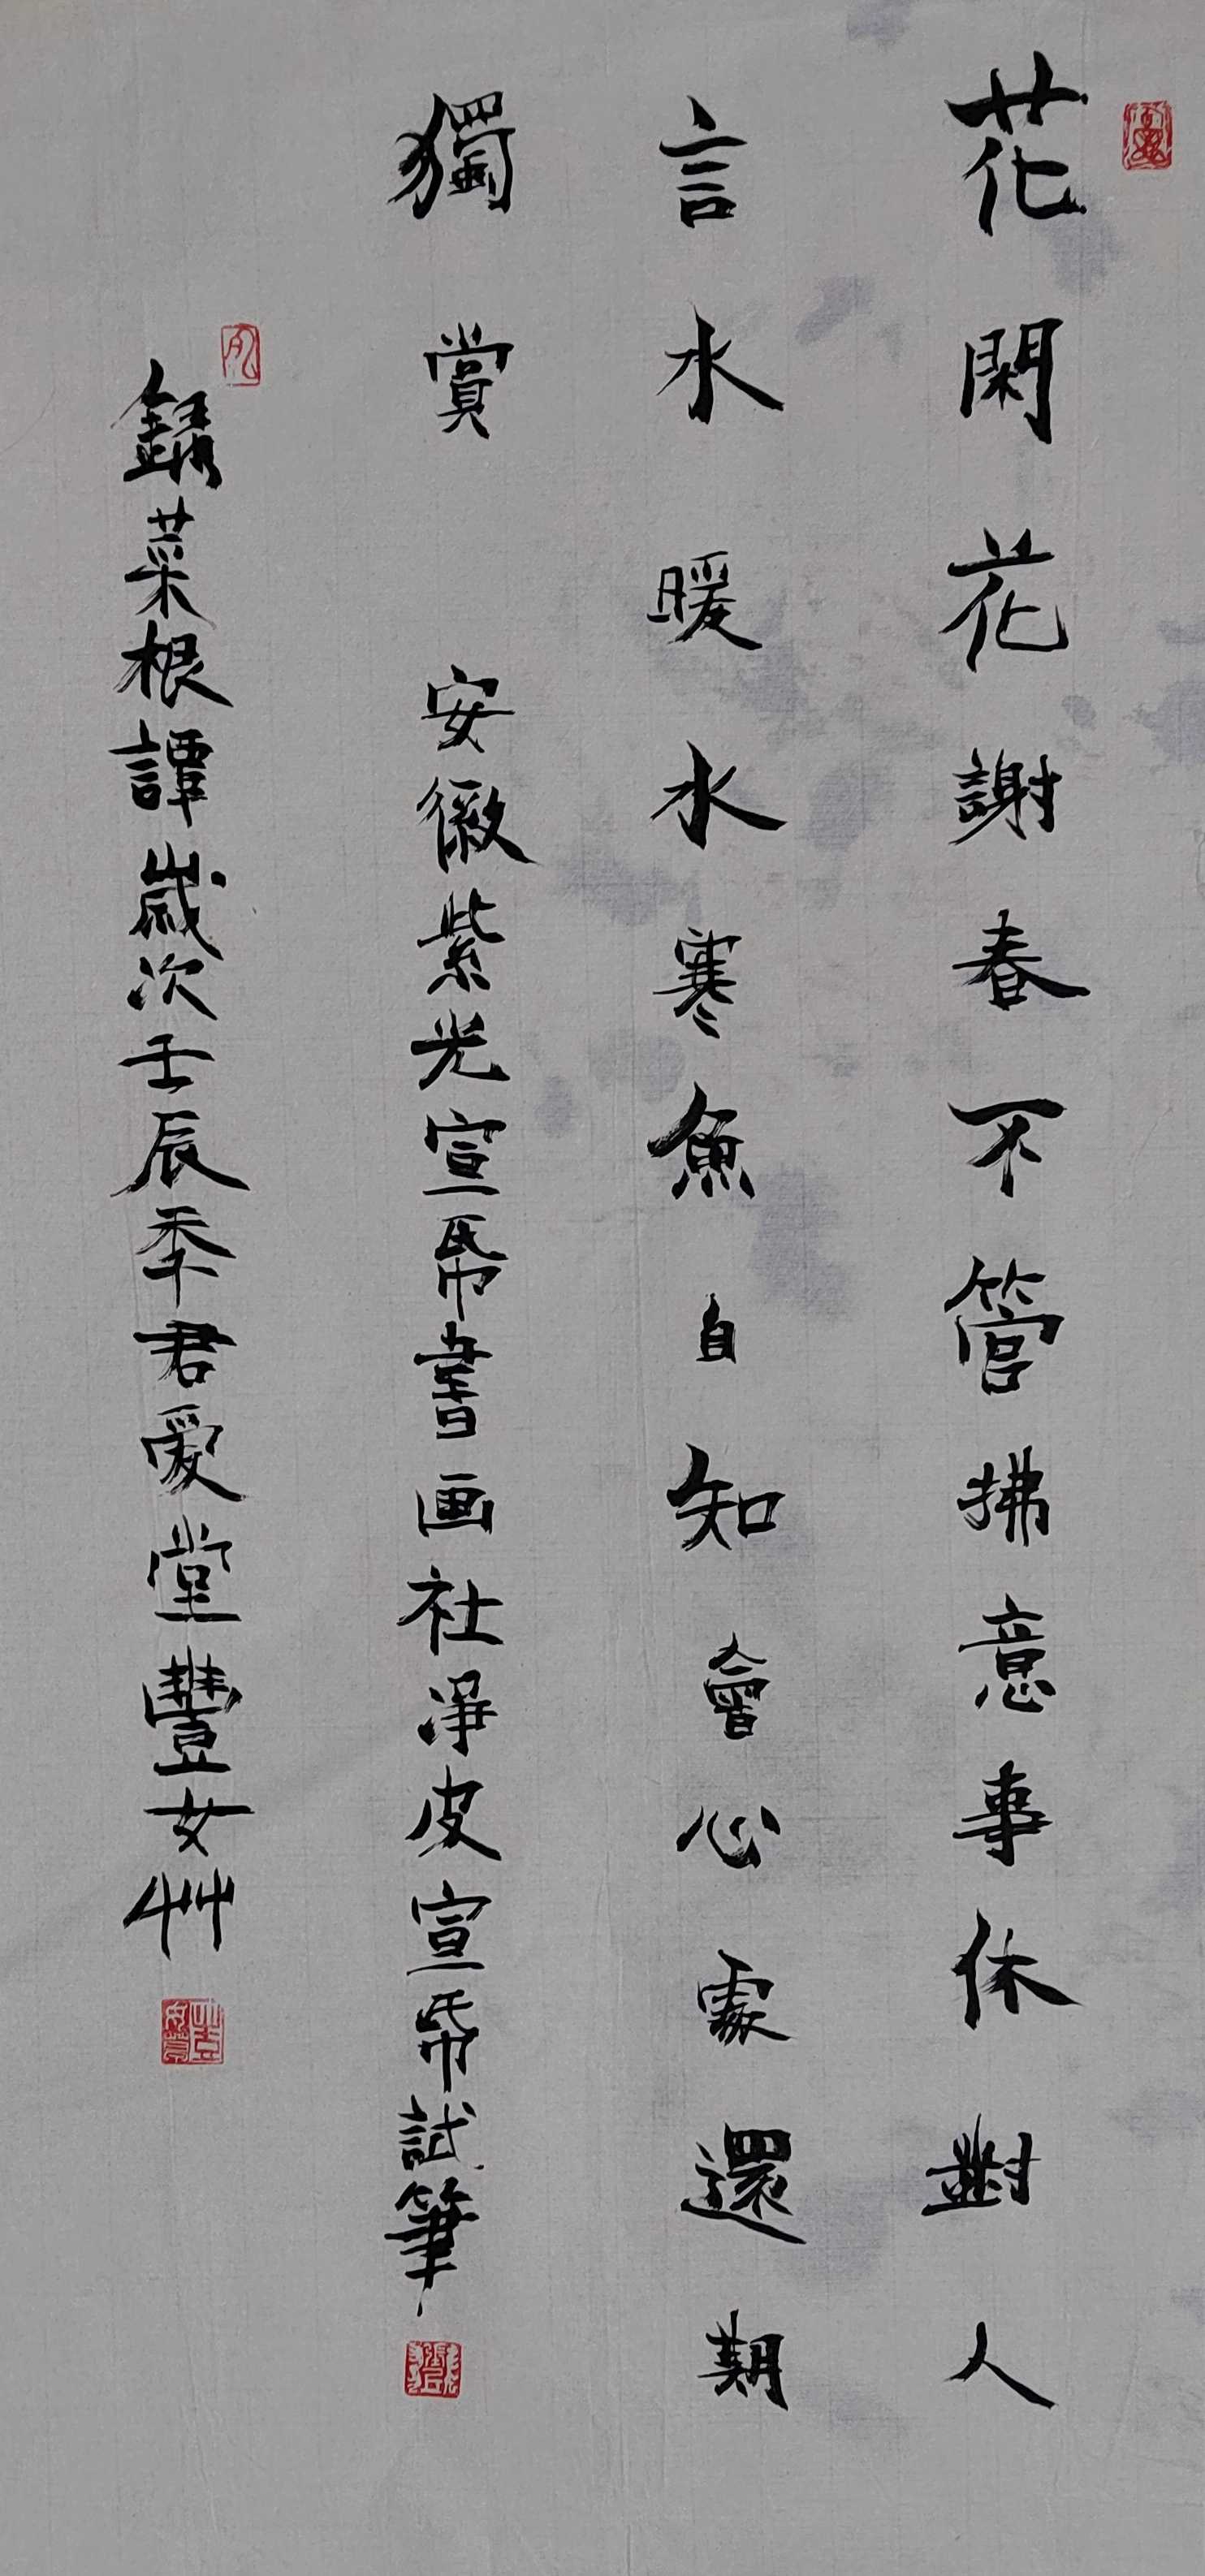 花開花謝春不管拂意事休對人
言水暖水寒魚自知會心處還期
獨賞 安徽紫光宣帋書画社淨皮宣帋試筆
錄菜根譚歲次壬辰秊君愛堂豐女艸